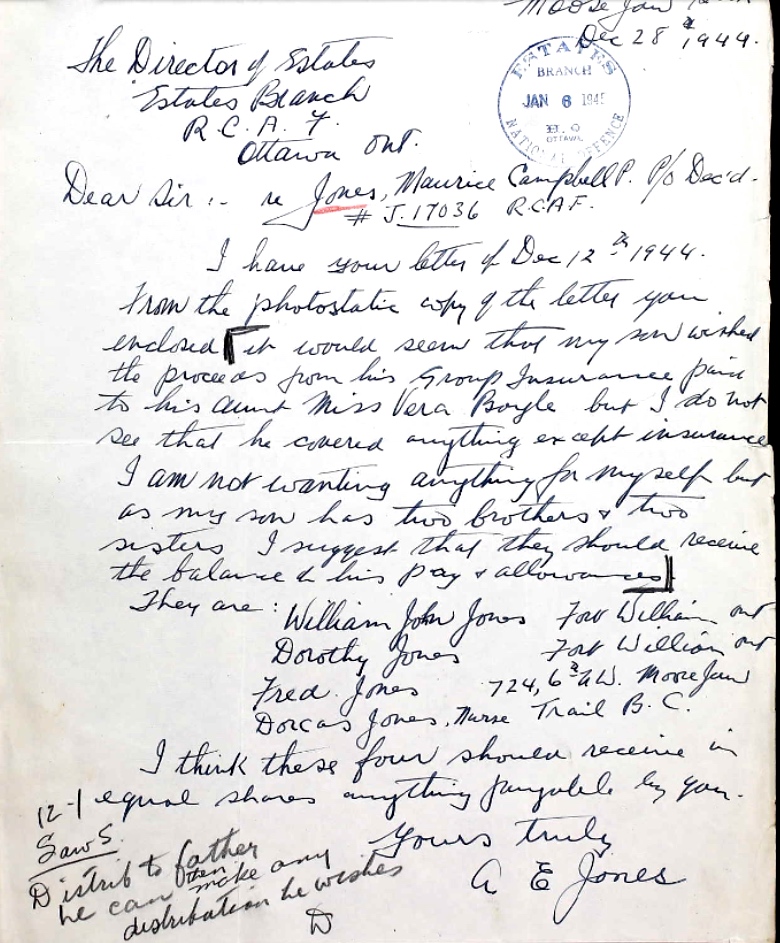 Moose Jaw
Dec 28th 1944.
The Director of Estates
Estates Branch
R.C.A.F.
Ottawa Ont.
ESTATES
BRANCH
JAN 6 1945
H.Q.
OTTAWA
NATIONAL DEFENCE
Dear Sir:- re Jones, Maurice Campbell P. P/O Dec'd.
# J.17036 R.C.A.F.
I have your letter of Dec 12th 1944.
From the photostatic copy of the letter you
enclosed it would seem that my son wished
the proceeds from his Group Insurance paid
to his aunt Miss Vera Boyle but I do not
see that he covered anything except insurance
I am not wanting anything for myself but
as my son has two brothers & two
sisters I suggest that they should receive
the balance of his pay & allowances
They are: William John Jones Fort William Ont
Dorothy Jones Fort William Ont
Fred Jones 724, 6th Av W. Moose Jaw
Dorcas Jones, Nurse Trail B.C.
I think these four should receive in
equal shares anything payable by you.
Yours truly
A E Jones
12-1
Distrib to father
he can then make any
distribution he wishes
D